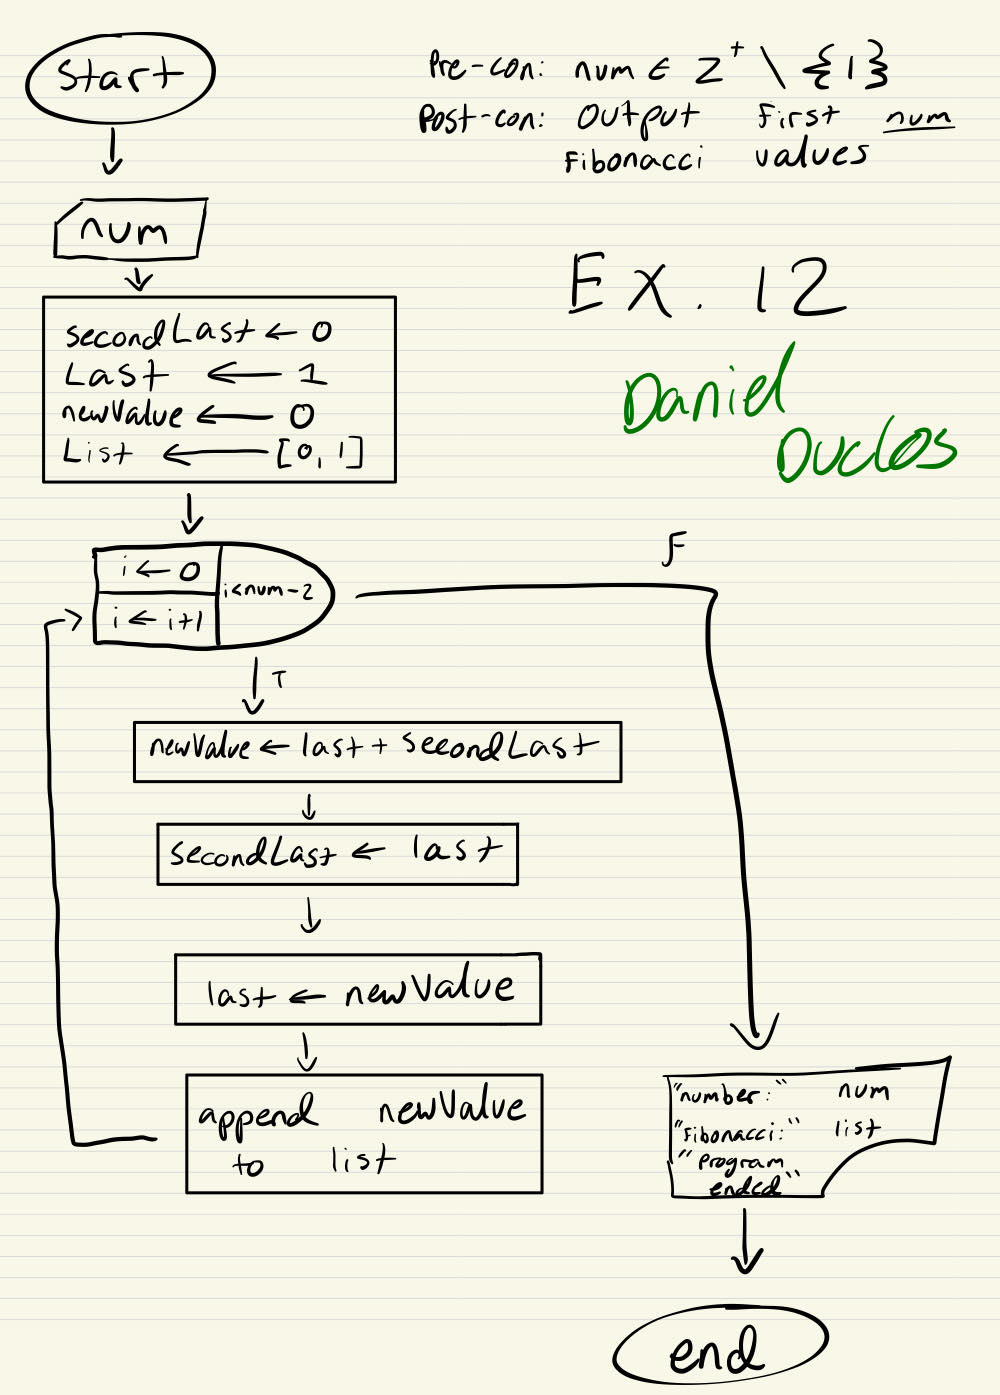 start
Pre-con: num ∈ Z⁺ \ {1}
Post-con: Output First num
Fibonacci values
num
Ex. 12
Daniel
Duclos
secondLast ← 0
Last ← 1
newValue ← 0
List ← [0, 1]
i ← 0
i ← i+1
i<num-2
F
T
newValue ← last + secondLast
secondLast ← last
last ← newValue
append newValue
to list
"number:" num
"Fibonacci:" list
"Program
ended"
end